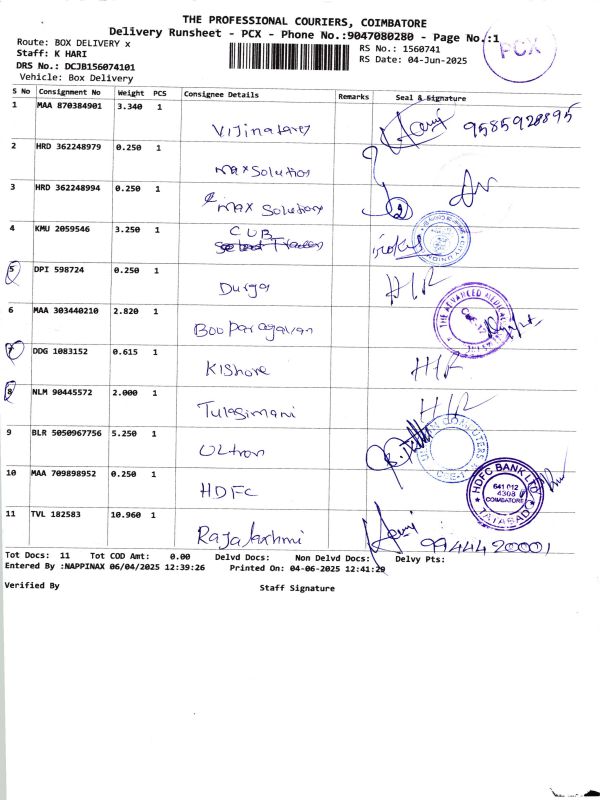 THE PROFESSIONAL COURIERS, COIMBATORE
Delivery Runsheet - PCX - Phone No.:9047080280 - Page No.:1
Route: BOX DELIVERY x
Staff: K HARI
DRS No.: DCJB156074101
Vehicle: Box Delivery
RS No.: 1560741
RS Date: 04-Jun-2025
PCX
S No Consignment No Weight PCS Consignee Details Remarks Seal & Signature
1 MAA 870384901 3.340 1 9585928895
2 HRD 362248979 0.250 1 Max Solution
3 HRD 362248994 0.250 1 Max Solution 2
4 KMU 2059546 3.250 1 CUB
5 DPI 598724 0.250 1 Durga
6 MAA 303440210 2.820 1 Boo THE ADVANCED MEDICAL
7 DDG 1083152 0.615 1 Kishore
8 NLM 90445572 2.000 1 Tulasimani
9 BLR 5050967756 5.250 1 Ultron COMPUTERS
10 MAA 709898952 0.250 1 HDFC HDFC BANK LTD
641 012
4308
COIMBATORE
TATABAD
11 TVL 182583 10.960 1 Rajalaxhmi 9944420001
Tot Docs: 11 Tot COD Amt: 0.00 Delvd Docs: Non Delvd Docs: Delvy Pts:
Entered By :NAPPINAX 06/04/2025 12:39:26 Printed On: 04-06-2025 12:41:29
Verified By Staff Signature